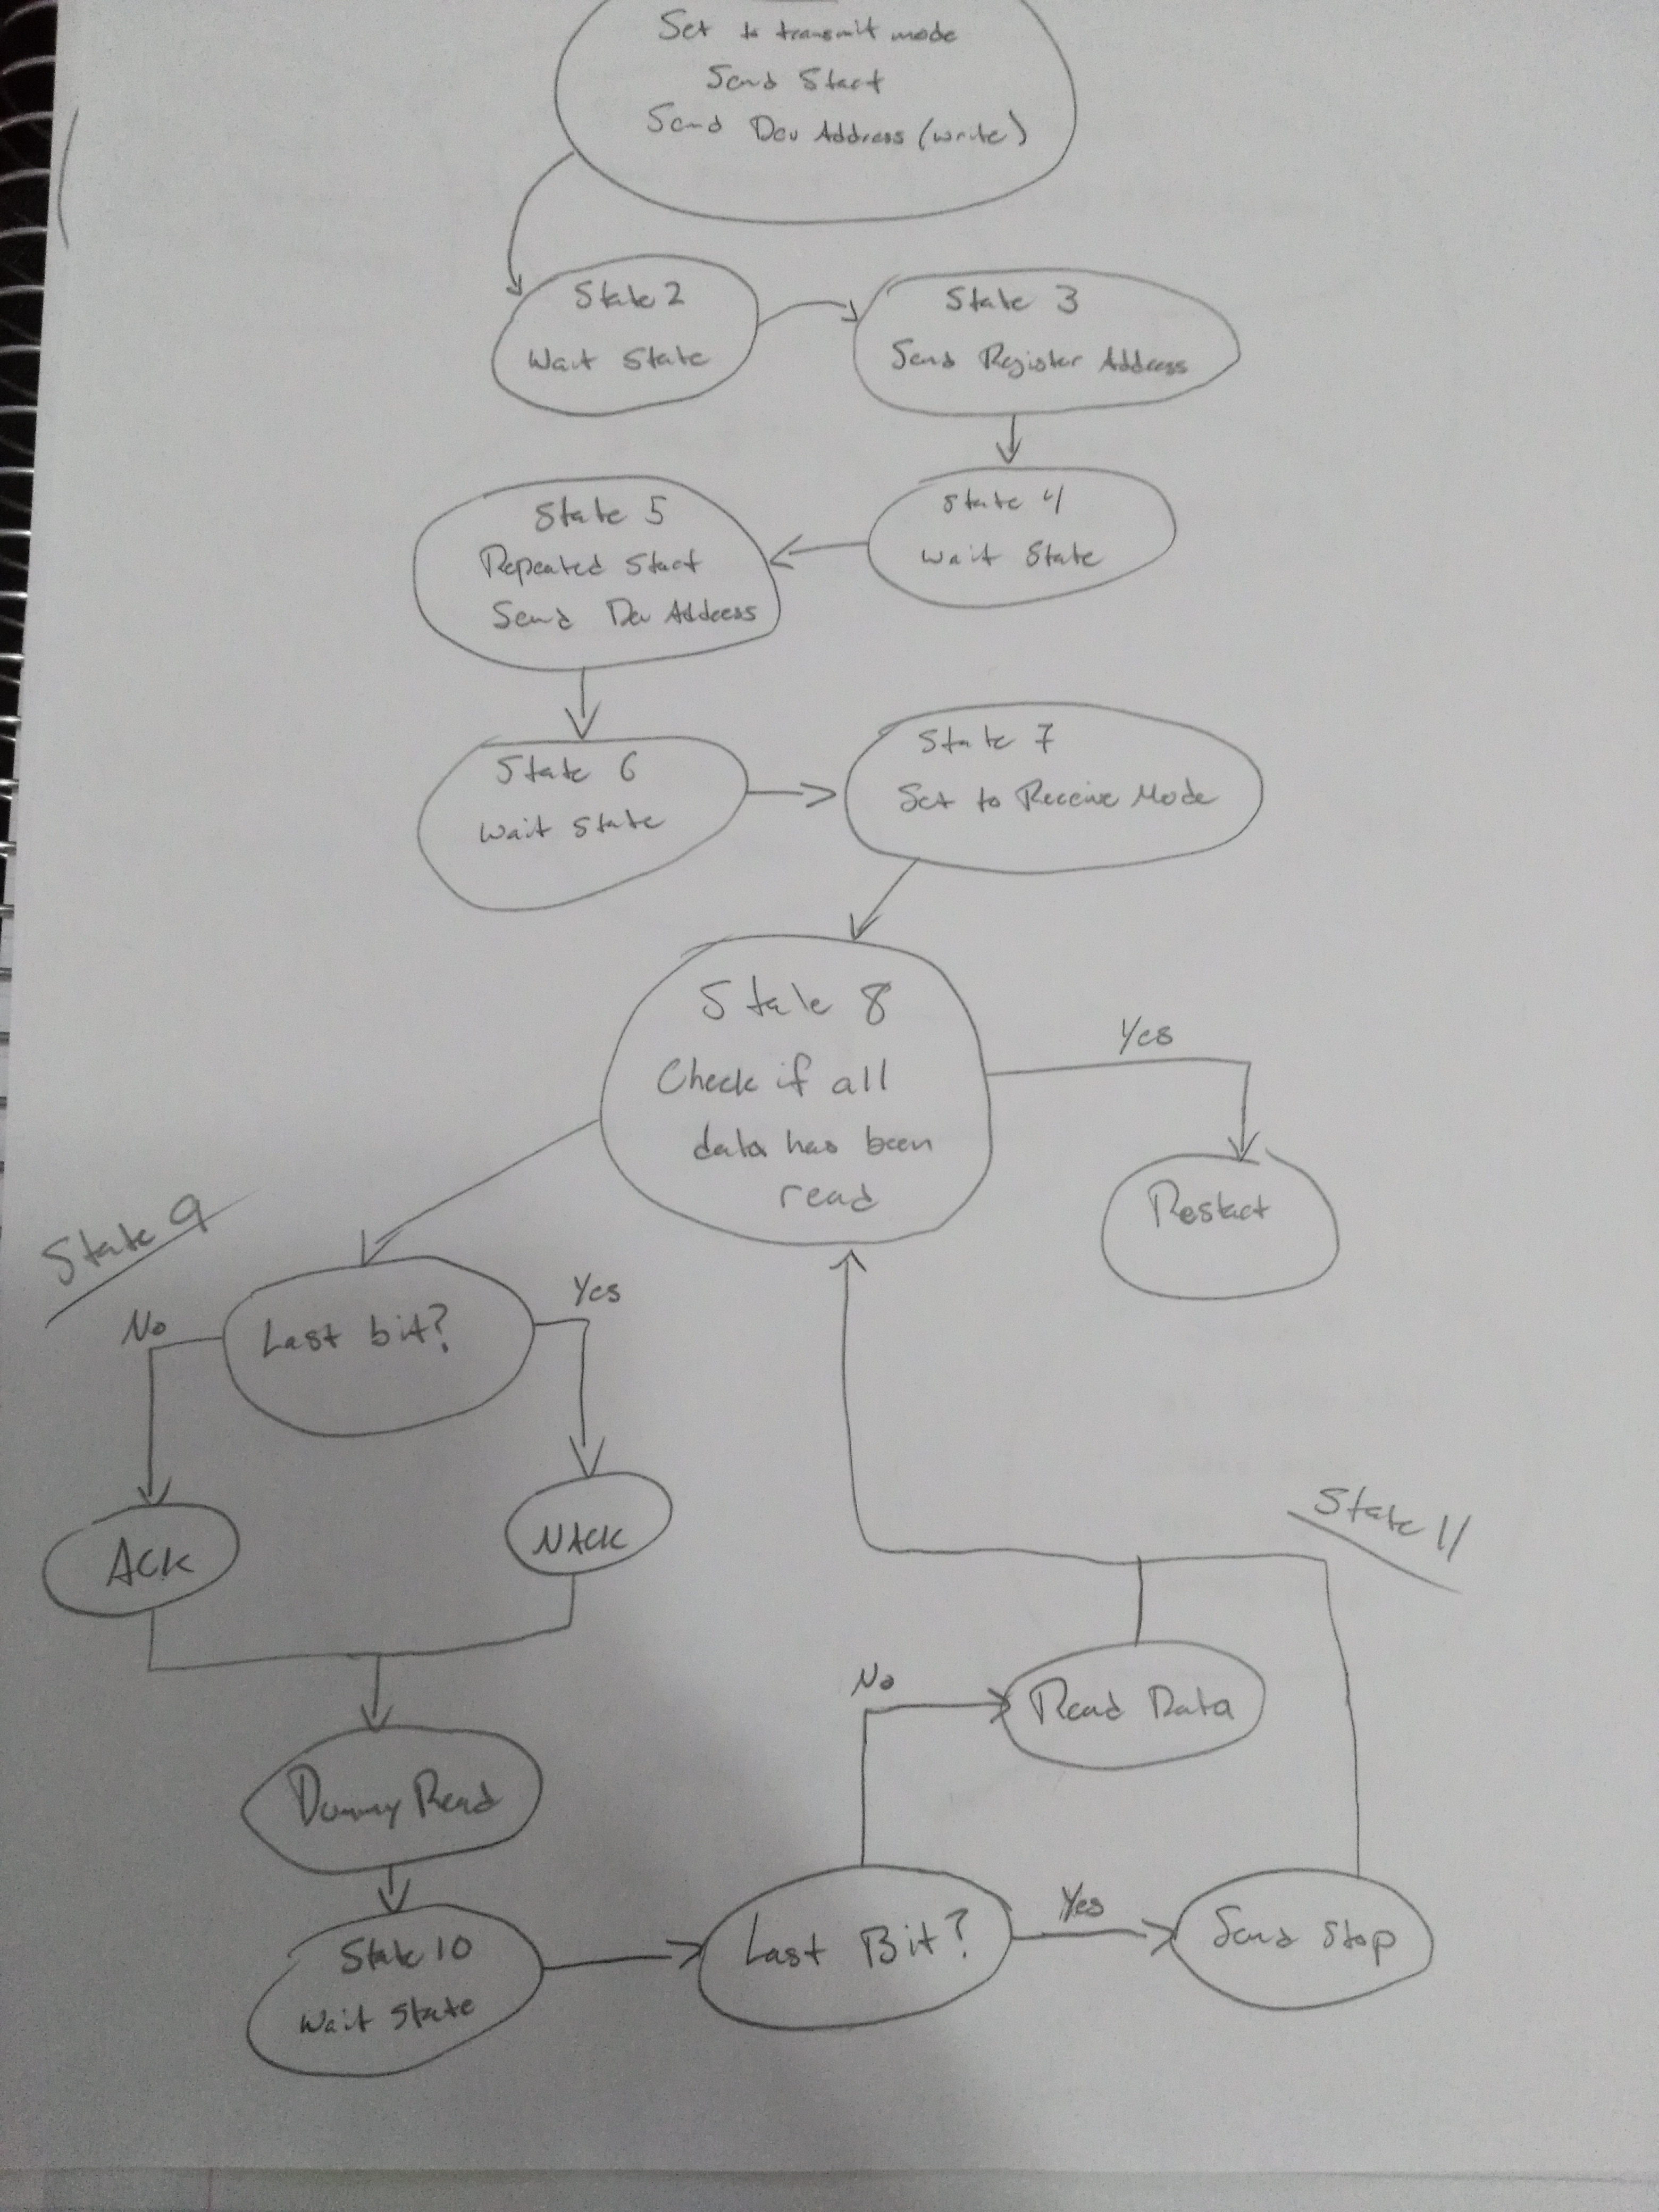 Set to transmit mode
Send Start
Send Dev Address (write)
State 2
Wait State
State 3
Send Register Address
State 4
Wait State
State 5
Repeated Start
Send Dev Address
State 6
Wait State
State 7
Set to Receive Mode
State 8
Check if all
data has been
read
Yes
Restart
State 9
No
Last bit?
Yes
ACK
NACK
State 11
Dummy Read
No
Read Data
State 10
Wait State
Last Bit?
Yes
Send Stop